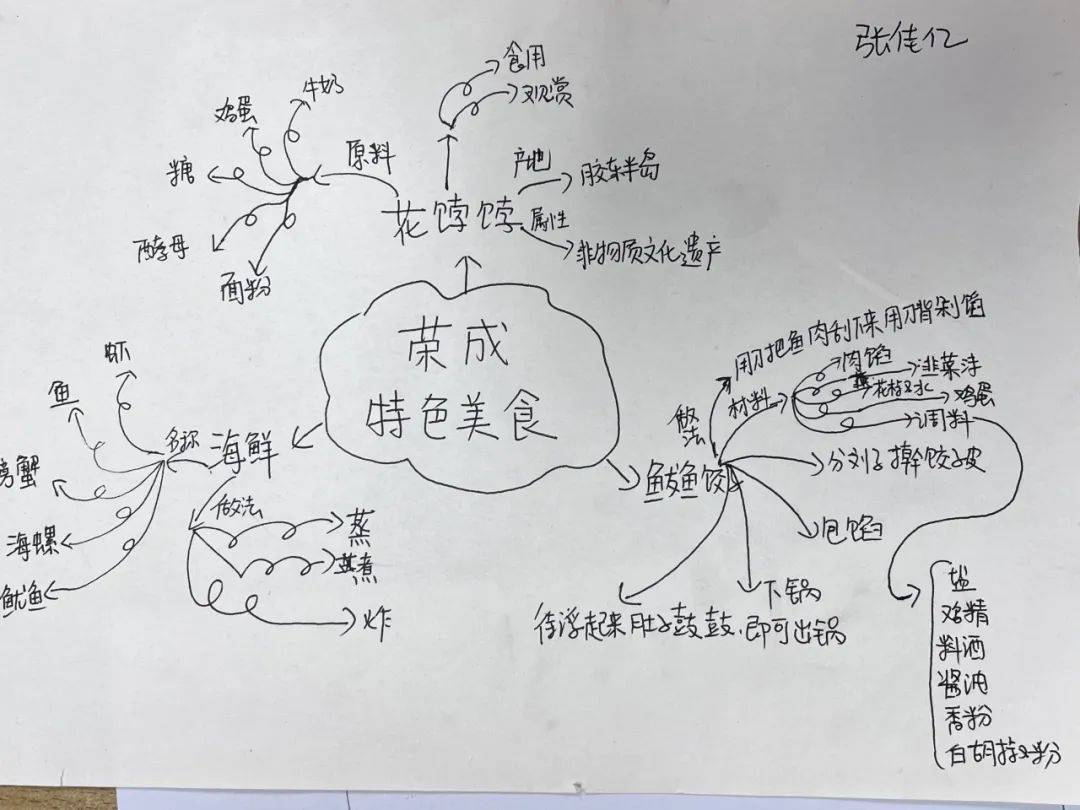 张佳亿
食用
观赏
牛奶
鸡蛋
糖
酵母
面粉
原料
产地
胶东半岛
花饽饽
属性
非物质文化遗产
荣成
特色美食
海鲜
名称
虾
鱼
螃蟹
海螺
鱿鱼
做法
蒸
煮
炸
鲅鱼饺子
做法
用刀把鱼肉刮下来用刀背剁馅
材料
肉馅
韭菜
花椒水
鸡蛋
调料
分刘子擀饺子皮
包馅
下锅
待浮起来肚子鼓鼓,即可出锅
盐
鸡精
料酒
酱油
香粉
白胡椒粉